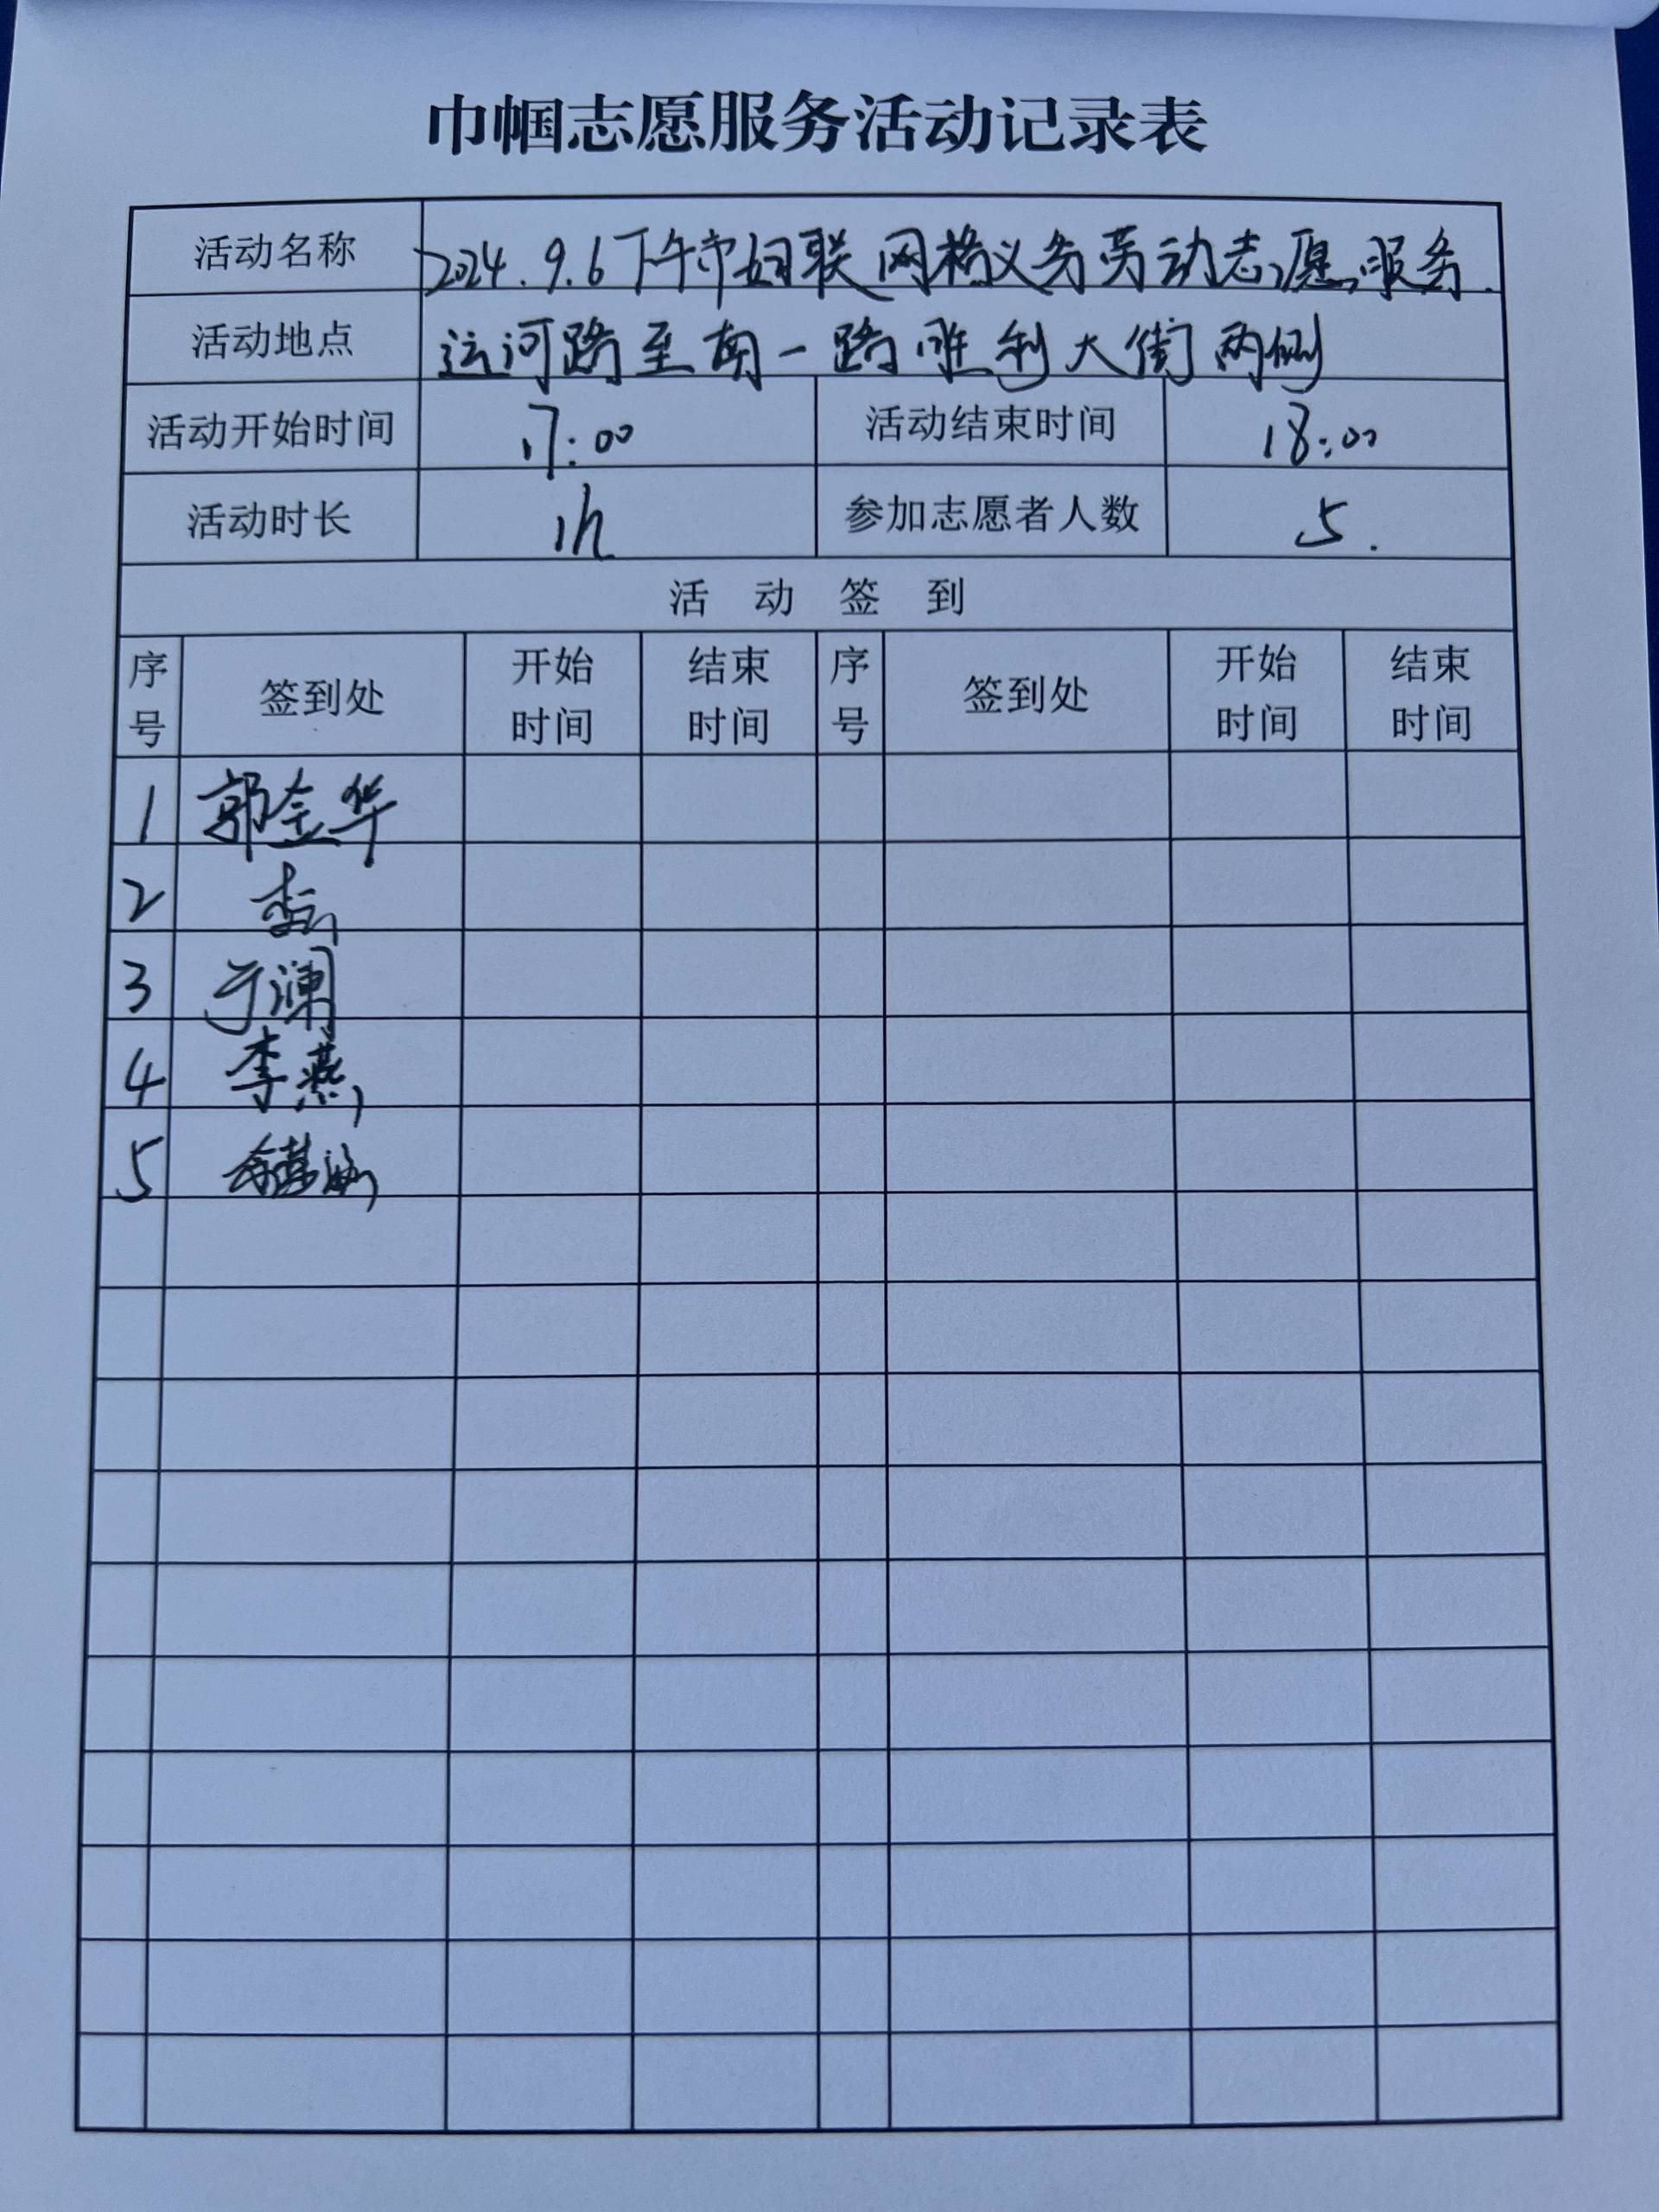 巾帼志愿服务活动记录表
活动名称 2024.9.6下午市妇联网格义务劳动志愿服务.
活动地点 运河路至南一路胜利大街两侧
活动开始时间 17:00 活动结束时间 18:00
活动时长 1h 参加志愿者人数 5.
活动签到
序号 签到处 开始时间 结束时间 序号 签到处 开始时间 结束时间
1 郭金华
2
3 于澜
4 李燕
5